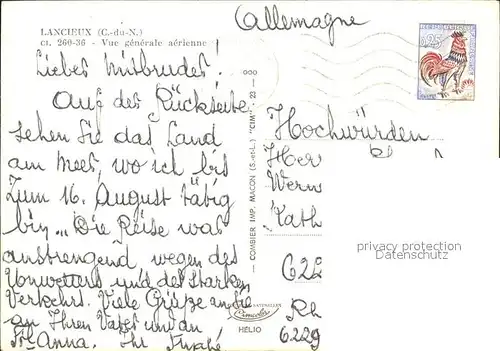 LANCIEUX (C.-du-N.)
CI. 260-36 - Vue générale aérienne
Allemagne
REPUBLIQUE
0,25
Liebes Mitbruder!
Auf der Rückseite
sehen Sie das Land
am Meer, wo ich bis
zum 16. August tätig
bin... Die Reise war
anstrengend wegen des
Unwetters und der starken
Verkehrs. Viele Grüße an Sie
an Ihren Vater und an
St-Anna. Ihr
— COMBIER IMP. MACON (S.-et-L.) "CIM" - 23 -
Hochwürden
Her
Wern
Kath
privacy protection
owner
622
Rh
6229
Combier
HELIO